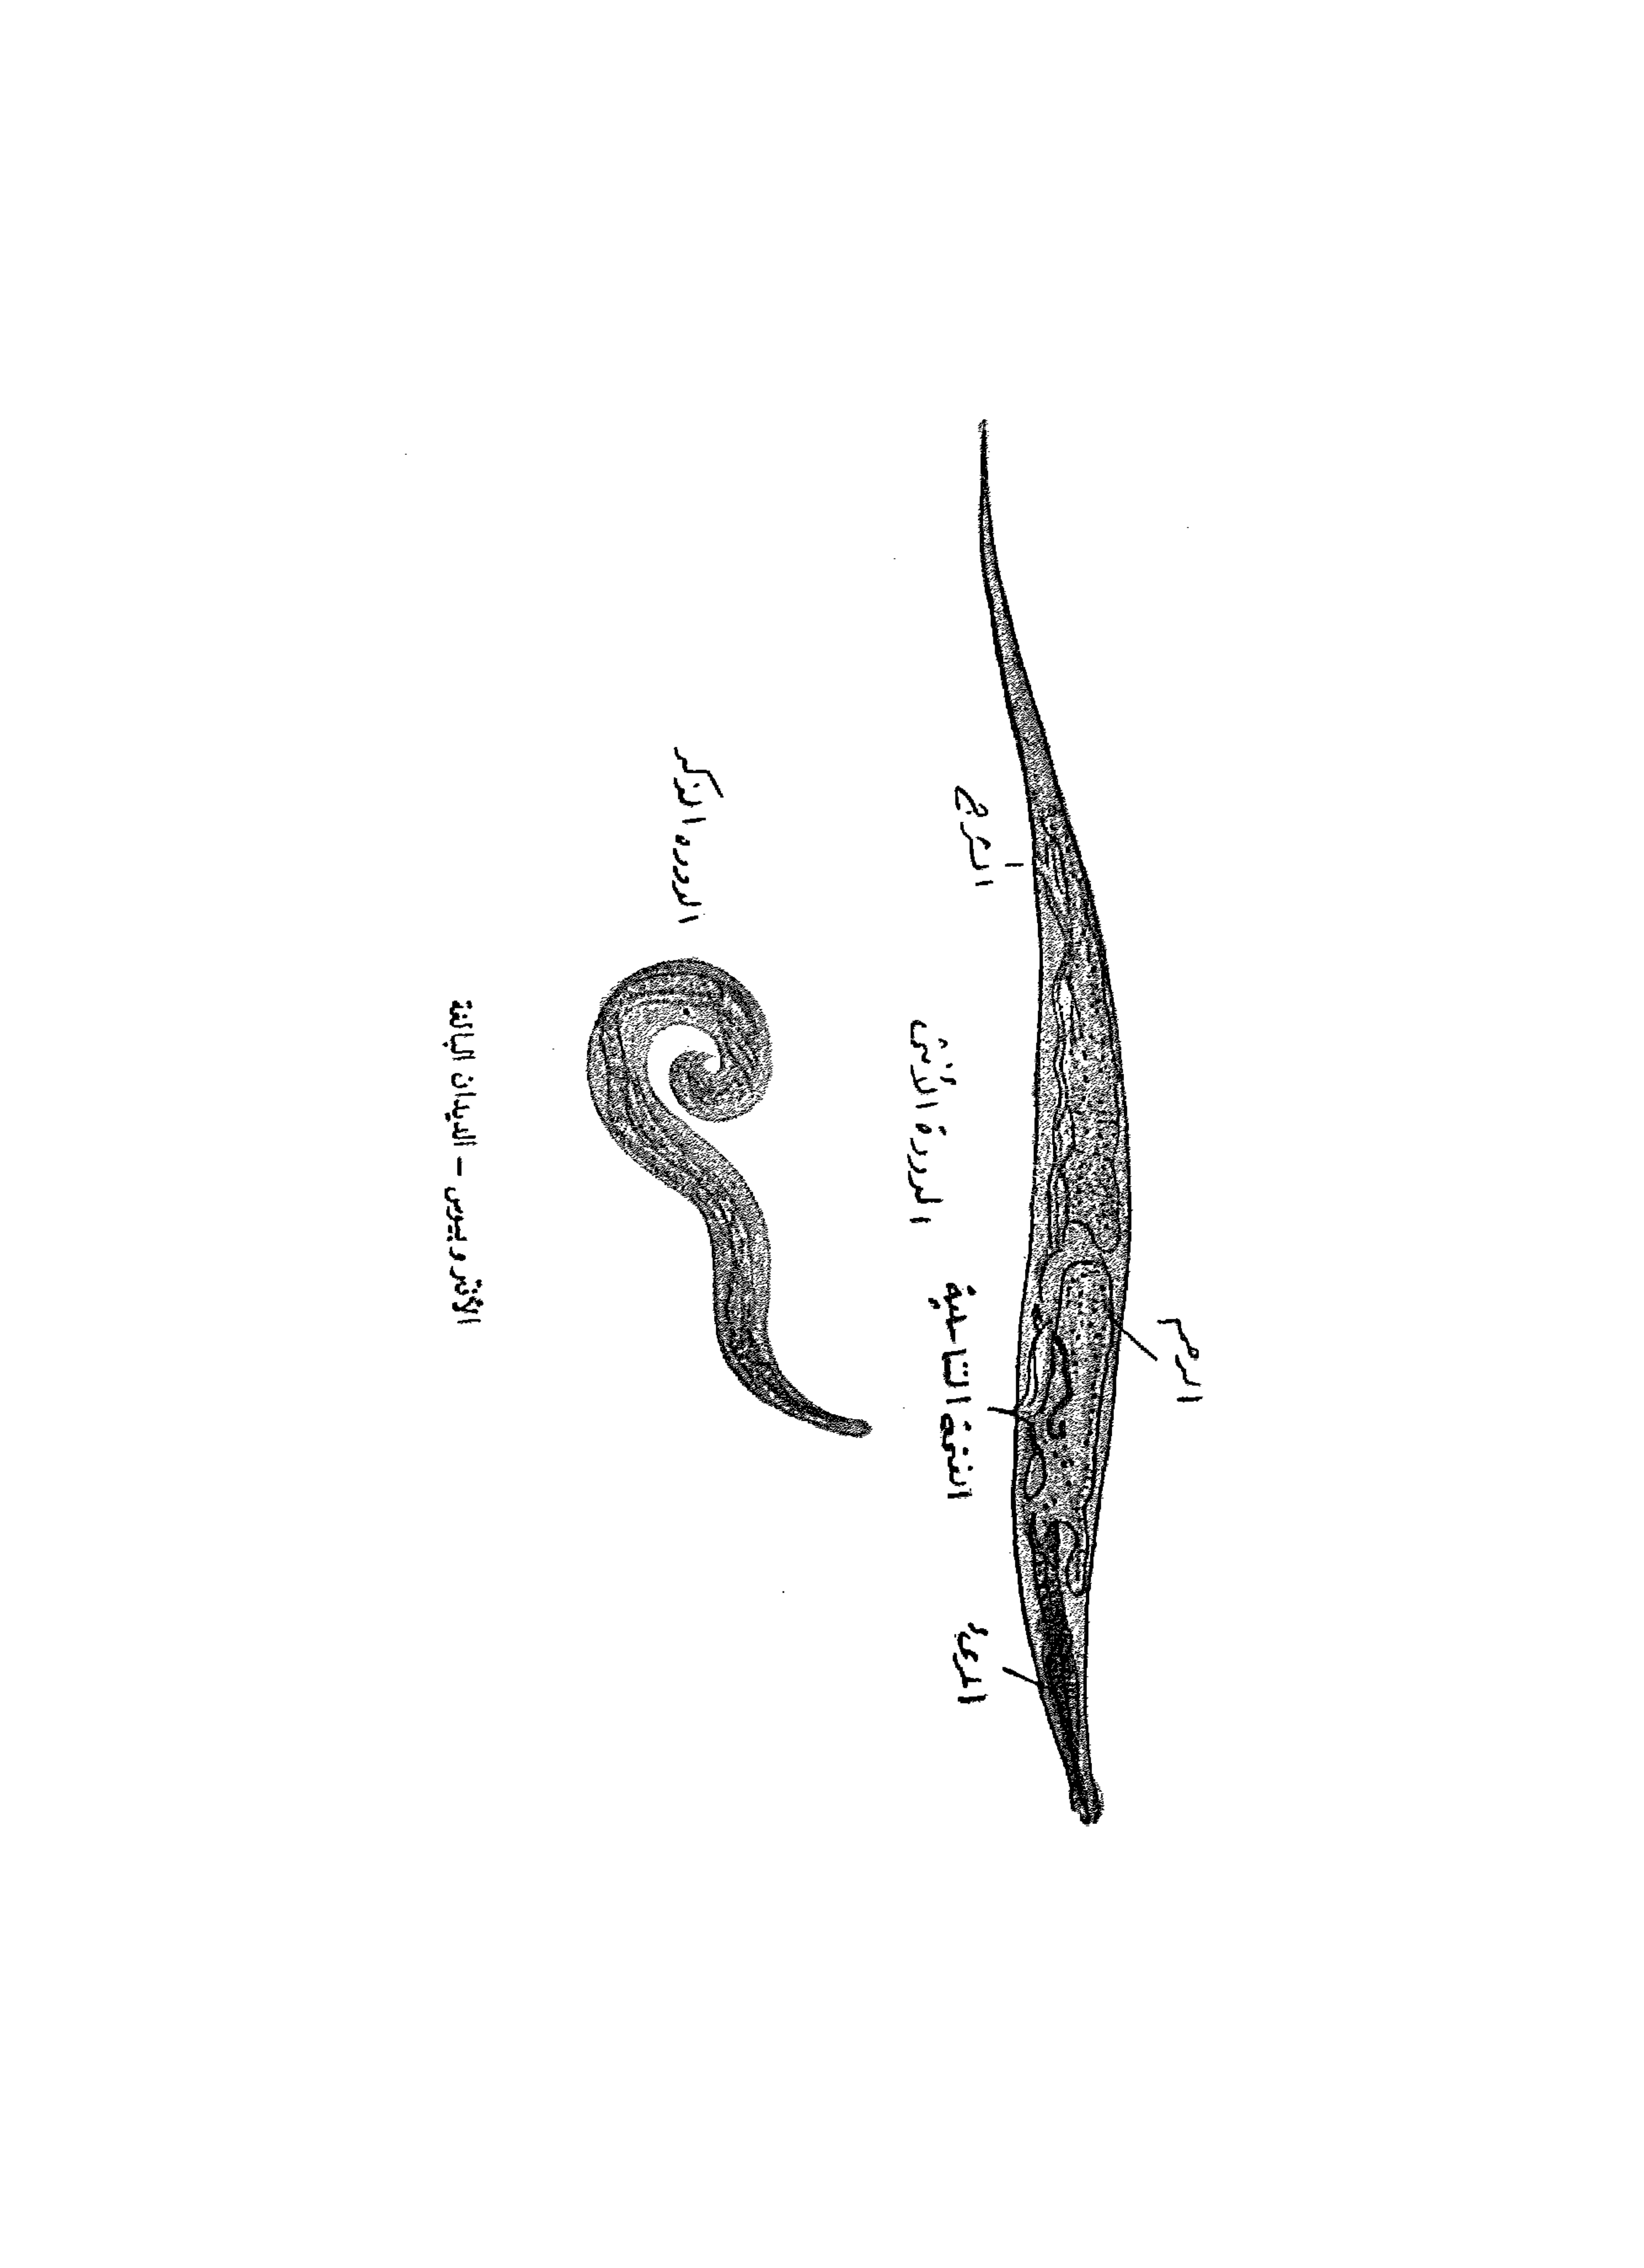 الرحم
المرئ
الفتحة التناسلية
الشرج
الدودة الأنثى
الدوده الذكر
الأنتروبيوس – الديدان البالغة